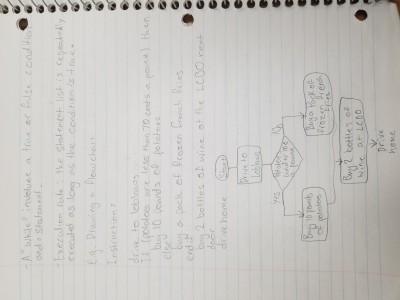 - A "while" involves a true or false condition
and a statement.
- Execution rule: the statement list is repeatedly
executed as long as the condition is true.
E.g. Drawing a flowchart
Instructions:
drive to Loblaws
If (potatoes are less than 70 cents a pound) then
buy 10 pounds of potatoes
else
buy a pack of frozen french fries
endif
buy 2 bottles of wine at the LCBO next
door
drive home
Start
Drive to
Loblaws
Yes
No
Buy 10 pounds
of potatoes
Buy a pack of
frozen french
fries
Buy 2 bottles of
wine at LCBO
Drive
home